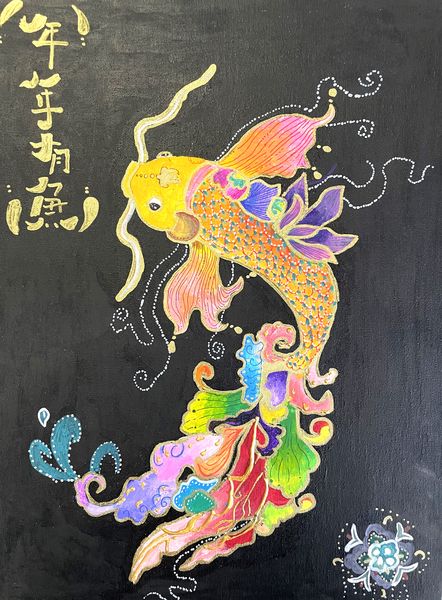 年年有魚